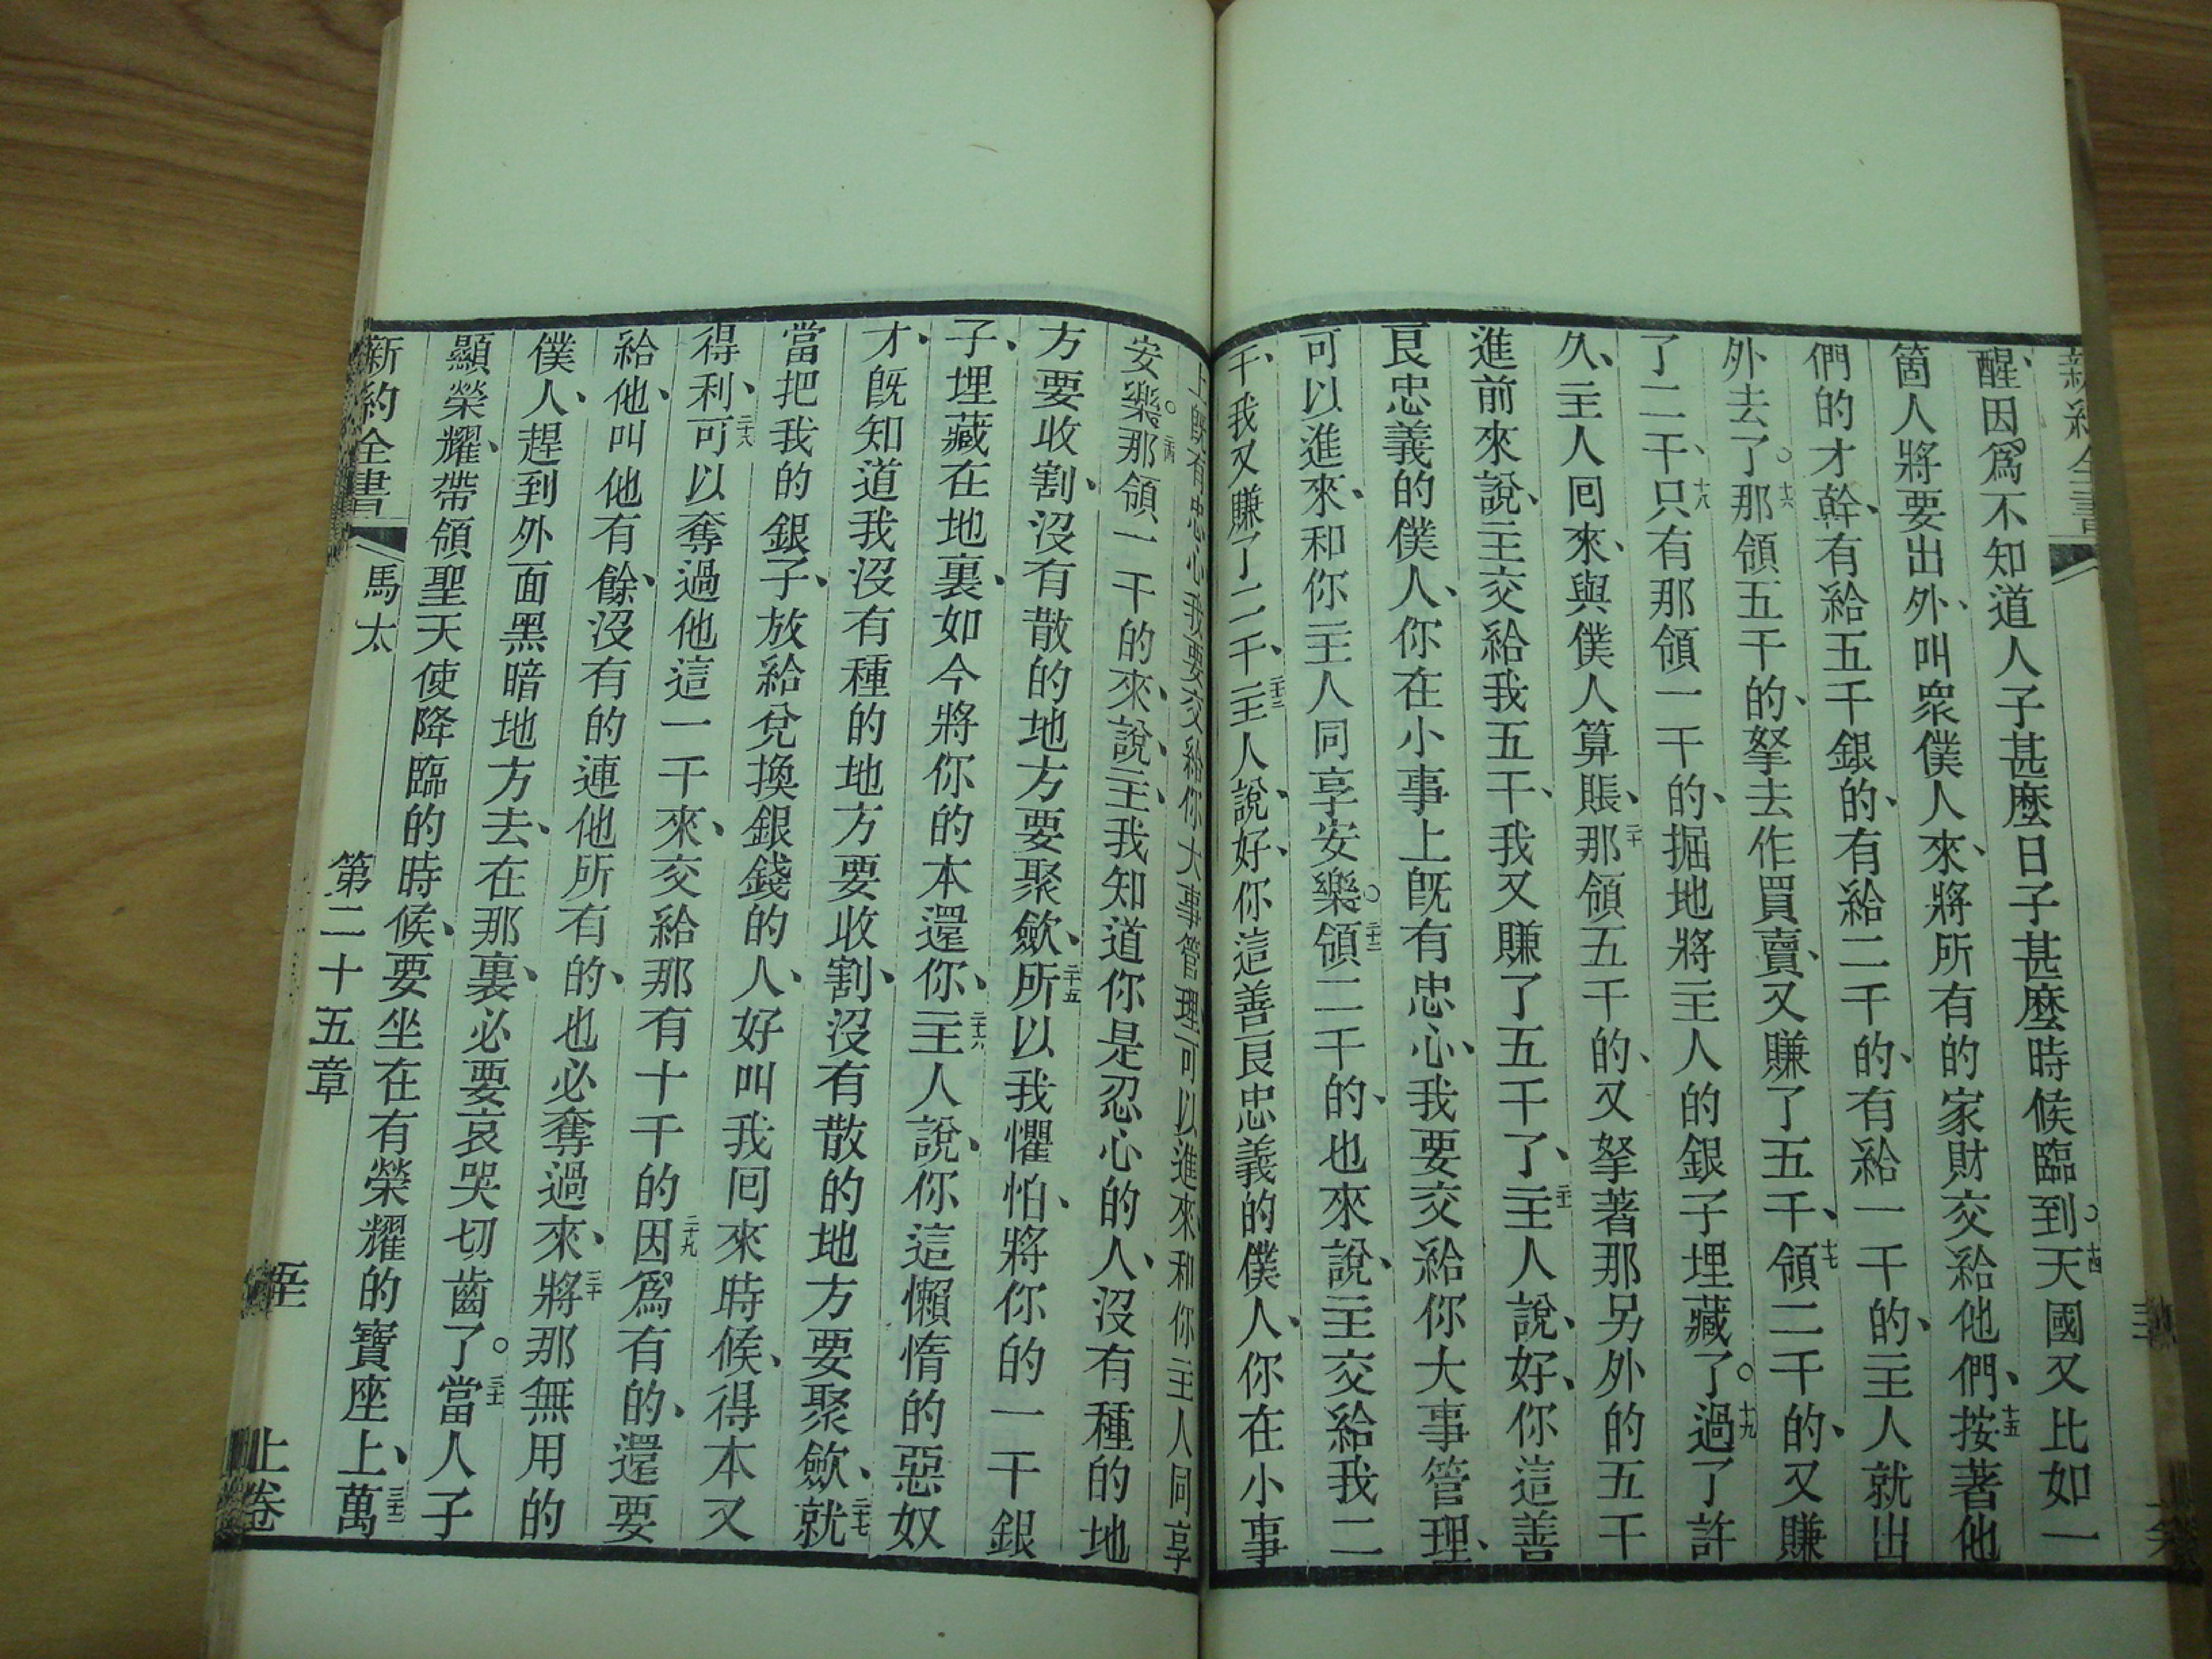 新約全書
醒、因爲不知道人子甚麼日子甚麼時候臨到。十四天國又比如一
箇人將要出外、叫衆僕人來、將所有的家財交給他們、十五按著他
們的才幹、有給五千銀的、有給二千的、有給一千的、主人就出
外去了。十六那領五千的、拏去作買賣、又賺了五千、十七領二千的、又賺
了二千、十八只有那領一千的、掘地將主人的銀子埋藏了。十九過了許
久、主人囘來、與僕人算賬、二十那領五千的、又拏著那另外的五千
進前來說、主交給我五千、我又賺了五千了、二十一主人說、好、你這善
良忠義的僕人、你在小事上旣有忠心、我要交給你大事管理、
可以進來、和你主人同享安樂。二十二領二千的、也來說、主交給我二
千、我又賺了二千、二十三主人說、好、你這善良忠義的僕人、你在小事
上旣有忠心我要交給你大事管理可以進來和你主人同享
安樂。二十四那領一千的來、說、主、我知道你是忍心的人、沒有種的地
方要收割、沒有散的地方要聚歛、二十五所以我懼怕、將你的一千銀
子、埋藏在地裏、如今將你的本還你、二十六主人說、你這懶惰的惡奴
才、旣知道我沒有種的地方要收割、沒有散的地方要聚歛、二十七就
當把我的銀子、放給兌換銀錢的人、好叫我囘來時候、得本又
得利、二十八可以奪過他這一千來、交給那有十千的、二十九因爲有的、還要
給他、叫他有餘、沒有的、連他所有的、也必奪過來、三十將那無用的
僕人、趕到外面黑暗地方去、在那裏、必要哀哭切齒了。三十一當人子
顯榮耀、帶領聖天使降臨的時候、要坐在有榮耀的寶座上、三十二萬
新約全書 馬太 第二十五章 上卷